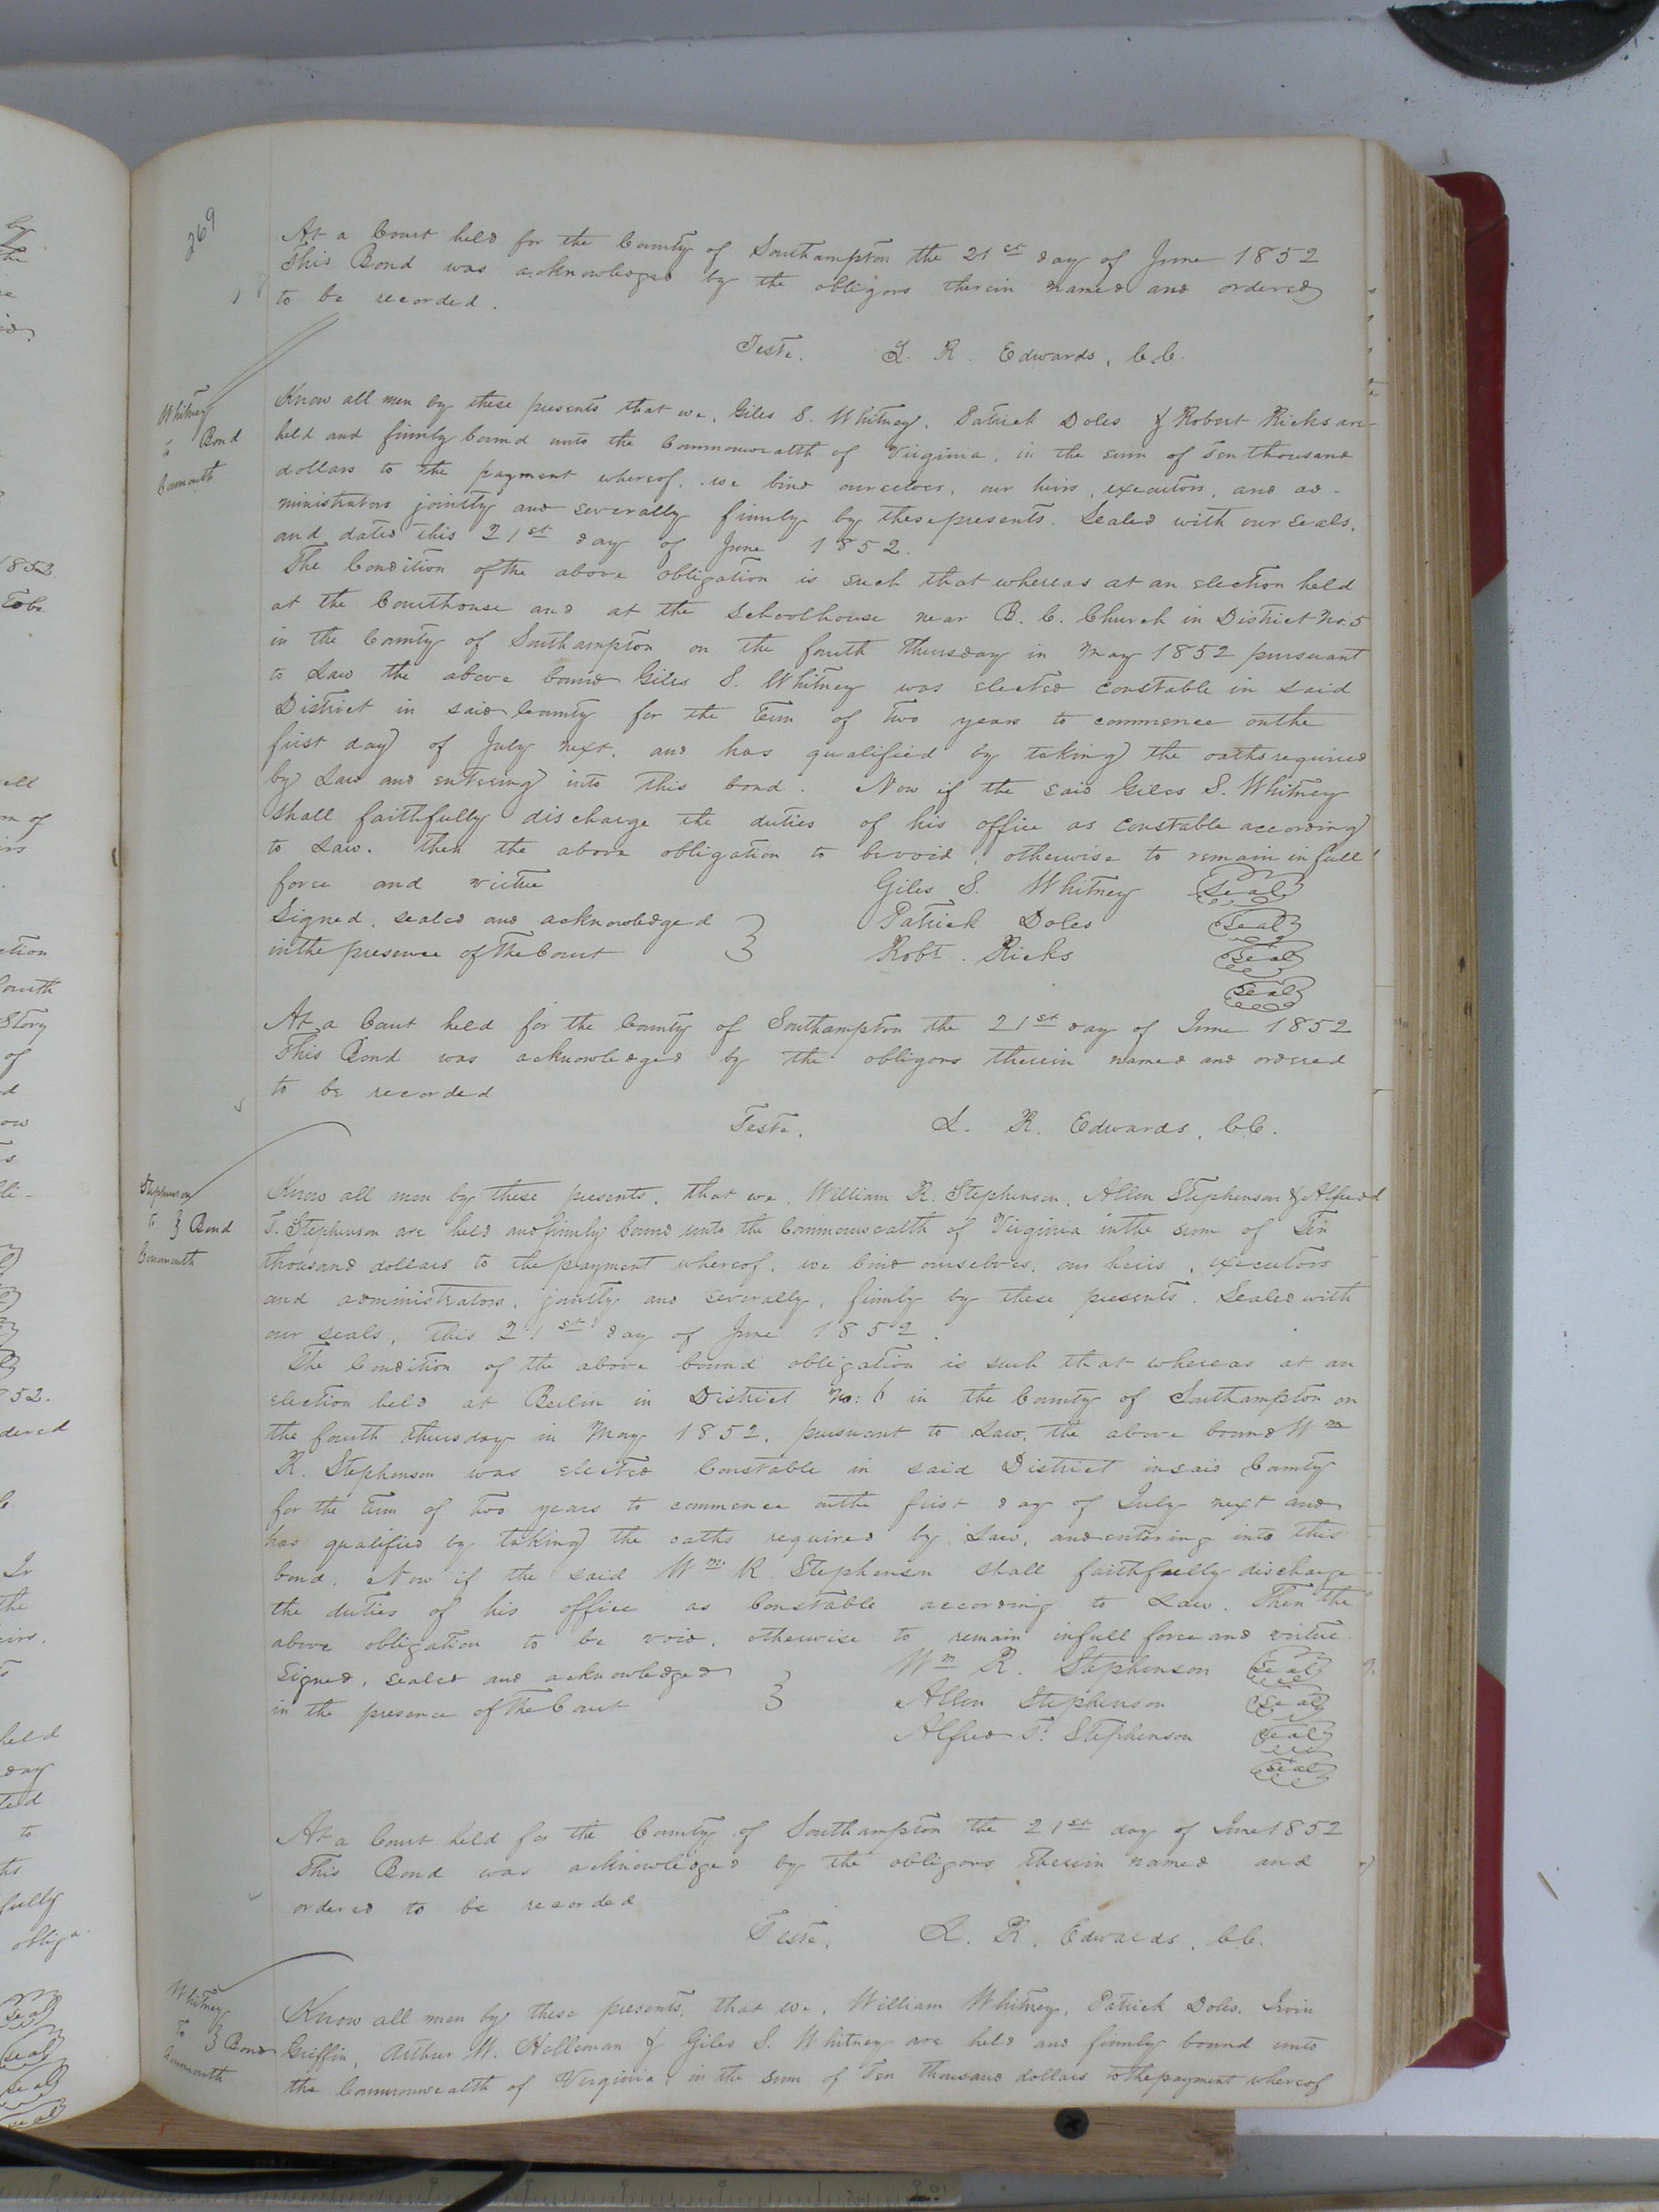 269
At a Court held for the County of Southampton the 21st day of June 1852
This Bond was acknowledged by the obligors therein named and ordered
to be recorded.
Teste. L. R. Edwards, C.C.
Whitney
to Bond
Commonth
Know all men by these presents that we, Giles S. Whitney, Patrick Doles & Robert Ricks are
held and firmly bound unto the Commonwealth of Virginia, in the sum of Ten thousand
dollars to the payment whereof, we bind ourselves, our heirs, executors, and ad-
ministrators jointly and severally firmly by these presents. Sealed with our seals,
and dated this 21st day of June 1852.
The Condition of the above obligation is such that whereas at an election held
at the Courthouse and at the Schoolhouse near B. C. Church in District No. 5
in the County of Southampton on the fourth Thursday in May 1852 pursuant
to Law the above bound Giles S. Whitney was elected constable in said
District in said County for the term of two years to commence on the
first day of July next, and has qualified by taking the oaths required
by Law and entering into this bond. Now if the said Giles S. Whitney
shall faithfully discharge the duties of his office as constable according
to Law. then the above obligation to be void, otherwise to remain in full
force and virtue Giles S. Whitney Seal
Signed, sealed and acknowledged } Patrick Doles Seal
in the presence of The Court Robt. Ricks Seal
Seal
At a Court held for the County of Southampton the 21st day of June 1852
This Bond was acknowledged by the obligors therein named and ordered
to be recorded
Teste. L. R. Edwards, CC.
Stephenson
to } Bond
Commonth
Know all men by these presents, that we, William R. Stephenson, Allen Stephenson & Alfred
T. Stephenson are held and firmly bound unto the Commonwealth of Virginia in the sum of Ten
thousand dollars to the payment whereof, we bind ourselves, our heirs, executors
and administrators, jointly and severally, firmly by these presents. Sealed with
our seals, this 21st day of June 1852.
The Condition of the above bound obligation is such that whereas at an
election held at Berlin in District No: 6 in the County of Southampton on
the fourth thursday in May 1852, pursuant to Law, the above bound Wm
R. Stephenson was elected Constable in said District in said County
for the term of two years to commence on the first day of July next and
has qualified by taking the oaths required by Law, and entering into this
bond. Now if the said Wm. R. Stephenson shall faithfully discharge
the duties of his office as Constable according to Law. Then the
above obligation to be void, otherwise to remain in full force and virtue.
Signed, sealed and acknowledged } Wm R. Stephenson Seal
in the presence of The Court Allen Stephenson Seal
Alfred T. Stephenson Seal
Seal
At a Court held for the County of Southampton the 21st day of June 1852
This Bond was acknowledged by the obligors therein named and
ordered to be recorded
Teste. L. R. Edwards, CC.
Whitney
to } Bond
Commonth
Know all men by these presents, that we, William Whitney, Patrick Doles, Irvin
Griffin, Arthur W. Holleman & Giles S. Whitney are held and firmly bound unto
the Commonwealth of Virginia, in the sum of Ten thousand dollars to the payment whereof